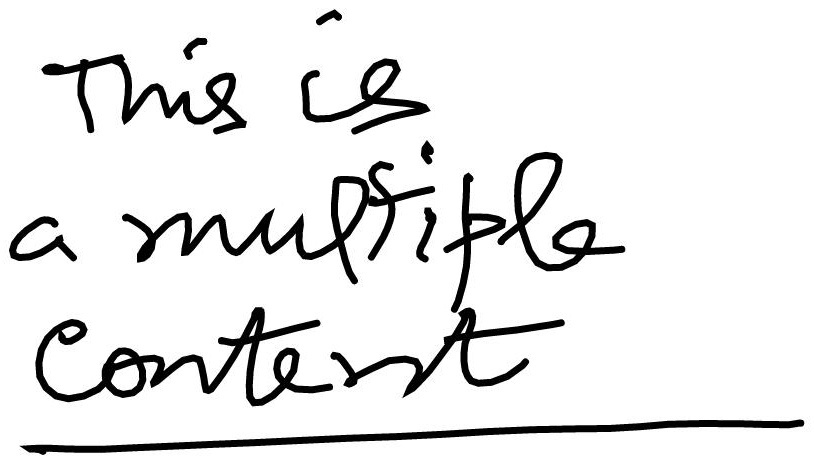 This is
a multiple
Content